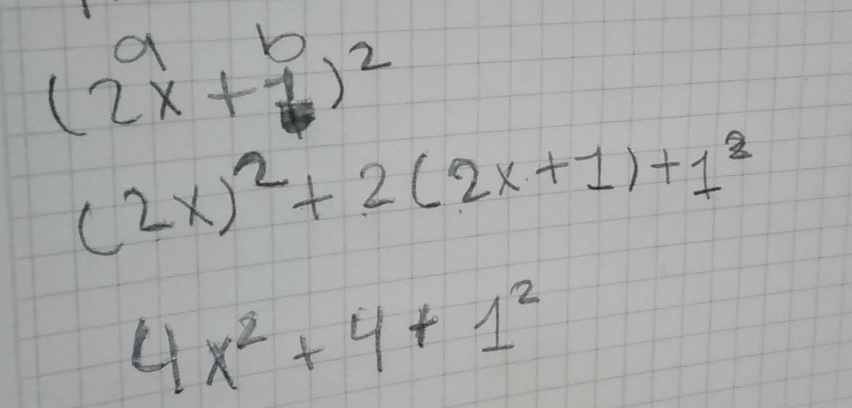 a b
(2x + 1)²
(2x)² + 2(2x + 1) + 1²
4x² + 4 + 1²